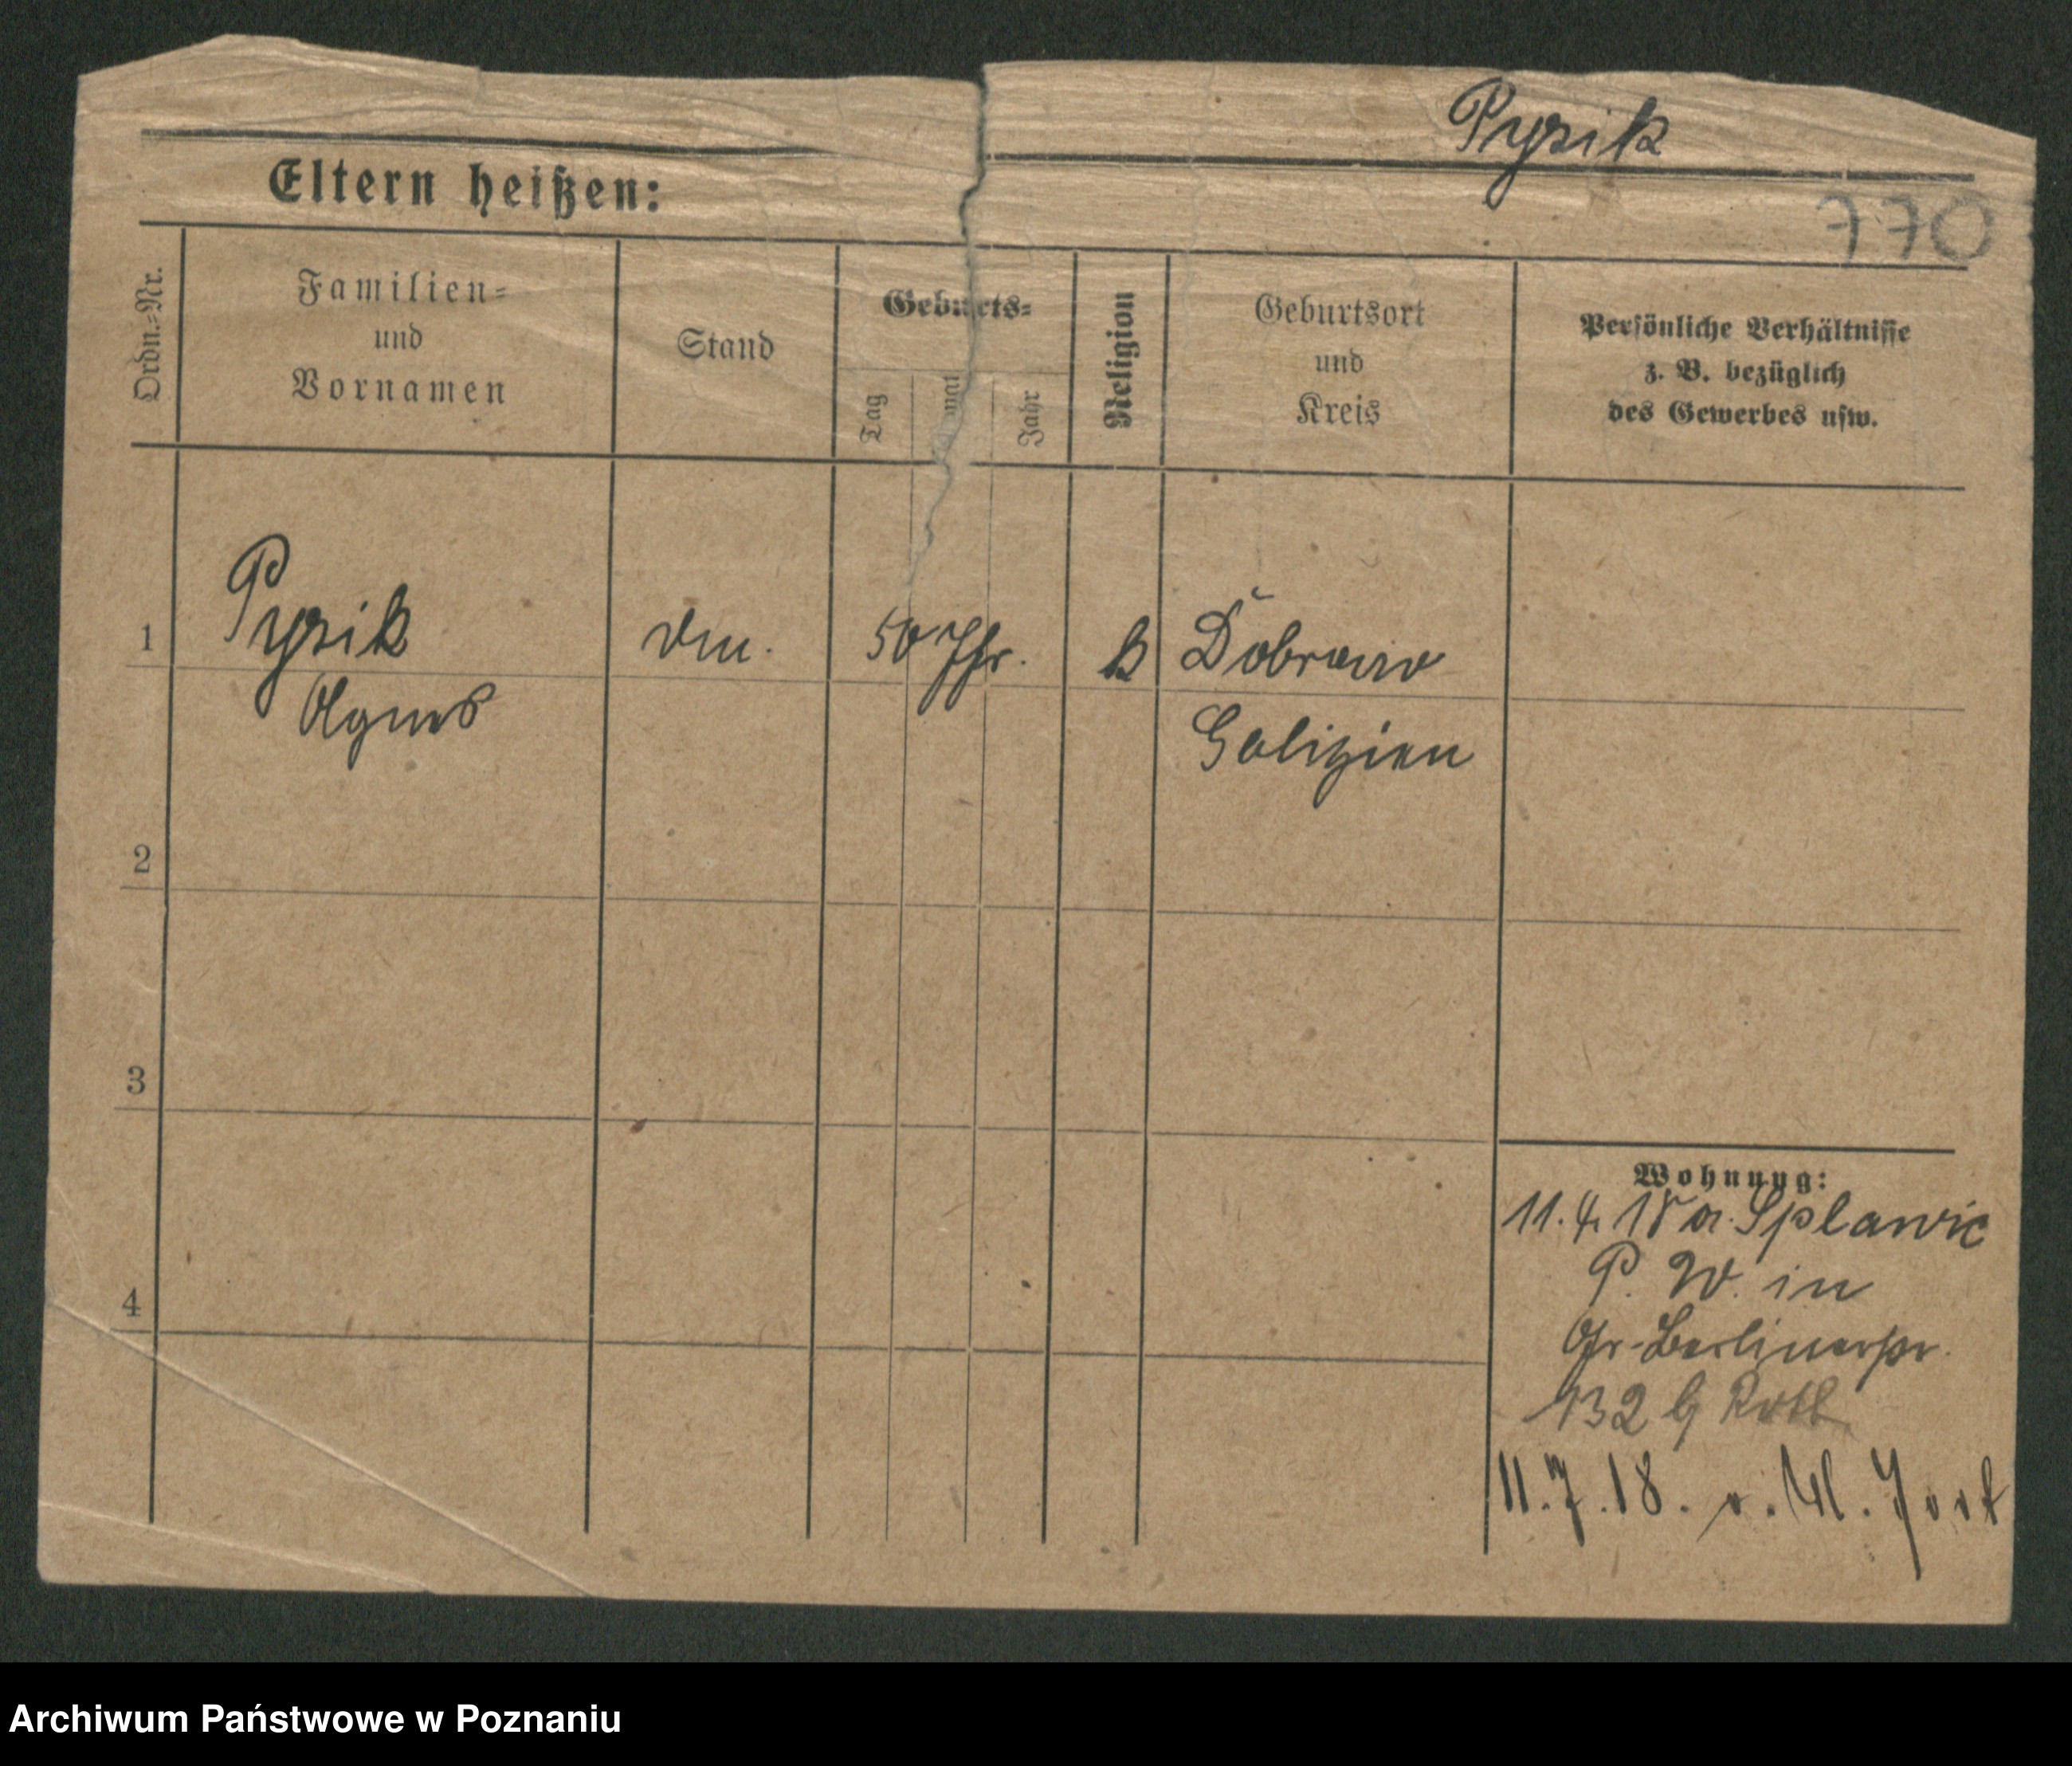 Pysik
770
Eltern heißen:
Ordn.-Nr.
Familien=
und
Vornamen
Stand
Geburts=
Tag
Jahr
Religion
Geburtsort
und
Kreis
Persönliche Verhältnisse
z. B. bezüglich
des Gewerbes usw.
1
Pysik
50 Jhr.
k
Dobrowo
Agnes
Galizien
2
3
4
Wohnung:
11. 4. 18 a. Splawie
P. W. in
Gr-Berlinerstr.
132 b
11.7.18. v.
Archiwum Państwowe w Poznaniu